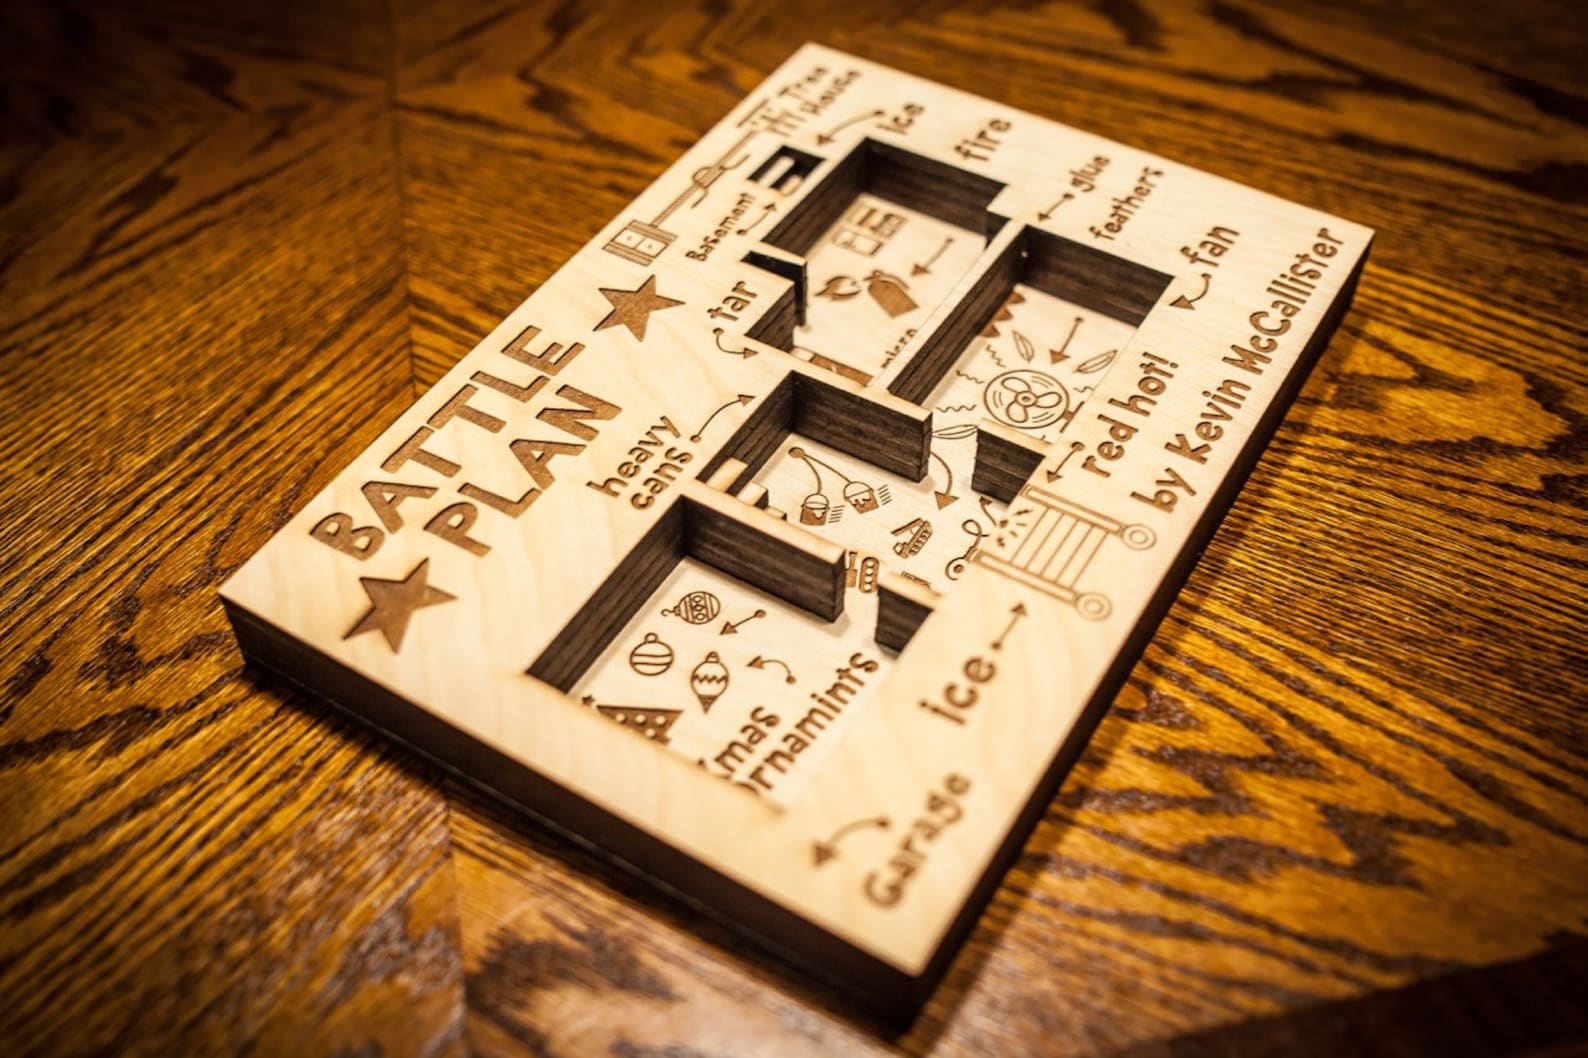 BATTLE
PLAN
by Kevin McCallister
Tree
House
ice
fire
glue
feathers
fan
Basement
tar
micro
heavy
cans
red hot!
ice
Xmas
Ornamints
Garage